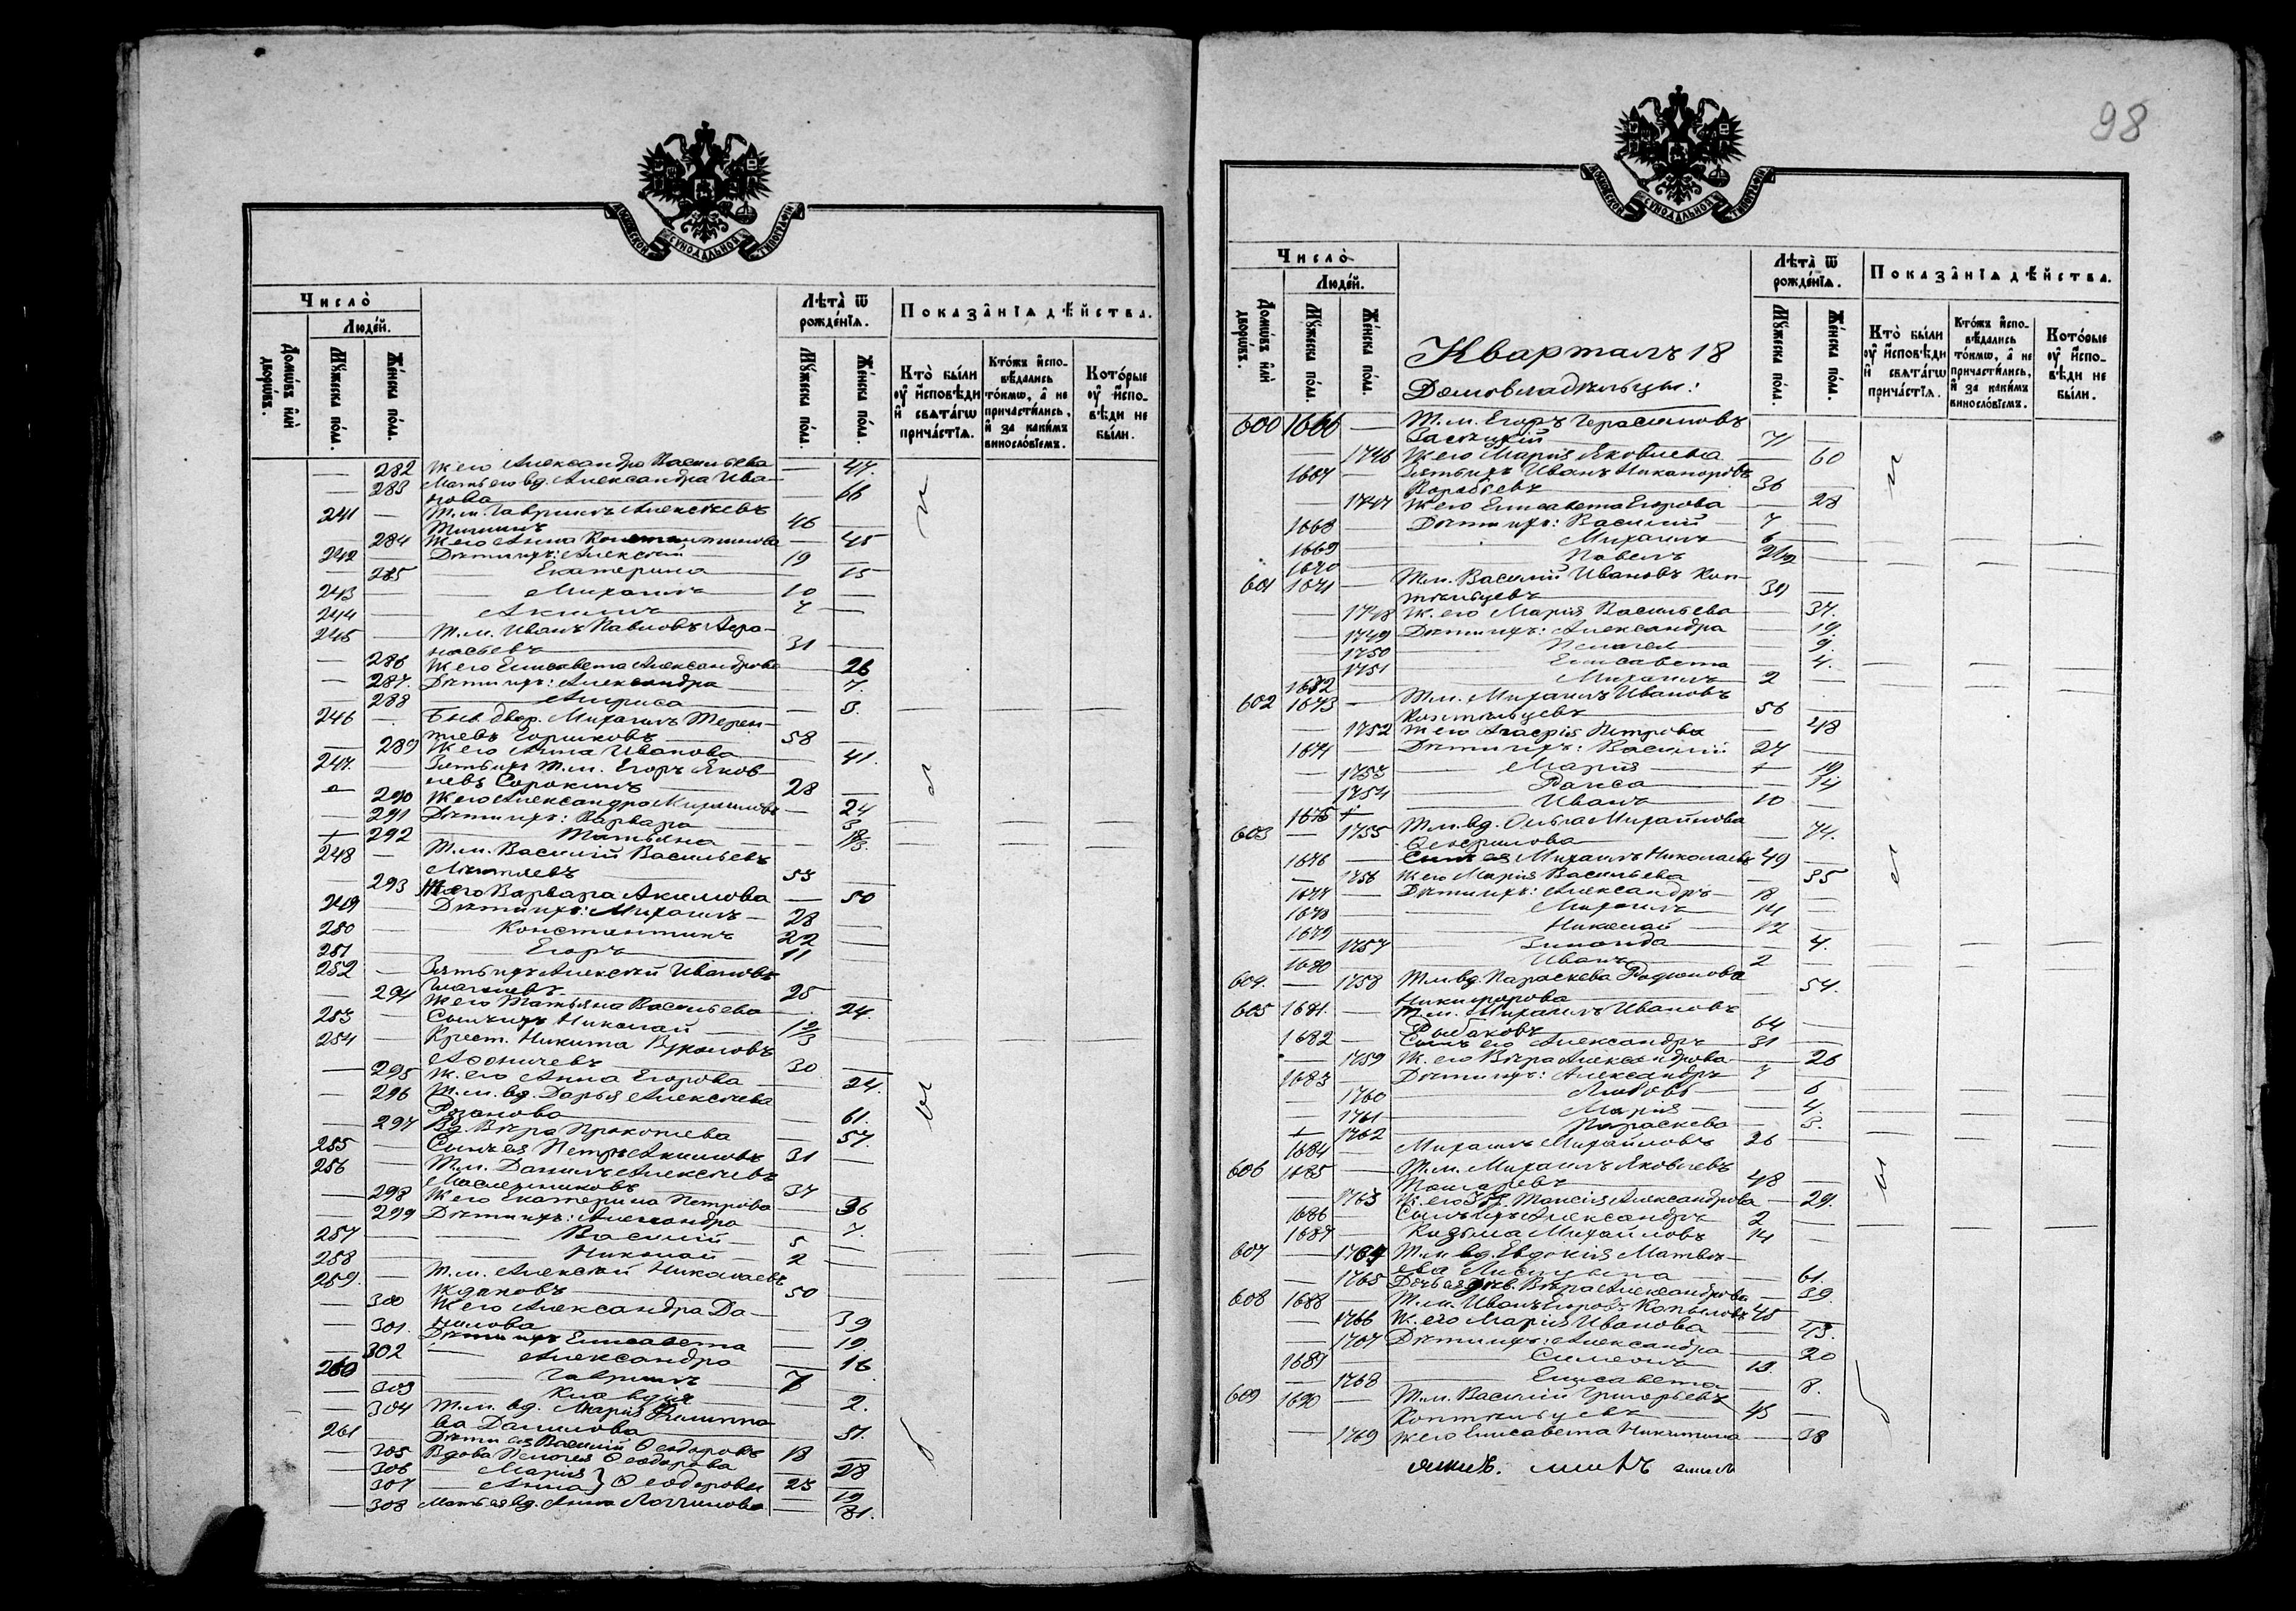 МОСКОВСКОЙ СѴНОДАЛЬНОЙ ТИПОГРАФІИ
Число̀
Людéй.
Домѡ́въ и҆лѝ дворѡ́въ.
Мꙋ́жеска по́ла.
Же́нска по́ла.
Лѣ́та ѿ рожде́нїѧ.
Мꙋ́жеска по́ла.
Же́нска по́ла.
Показа̂нїѧ дѣ́йства.
Кто̀ бы́ли оу҆ и҆сповѣ́ди и҆ свѧта́гѡ прича́стїѧ.
Кто́жъ и҆спо-вѣ́дались то́кмѡ, а҆ не причасти́лись, и҆ за каки́мъ винослѡ́вїемъ.
Кото́рые оу҆ и҆спо-вѣ́ди не бы́ли.
— 282 Ж его Александра Васильева — 47.
— 283 Мать его вд. Александра Ива-
нова — 66
241 — Т.м. Гавріилъ Алексѣевъ
46 —
— 284 Ж его Анна Константинова — 45
242 — Дѣти ихъ: Алексѣй 19 —
— 285 Екатерина — 15
243 — Михаилъ 10 —
244 — Акимъ 7 —
245 — Т.м. Иванъ Павловъ Аѳа-
насьевъ 31 —
— 286 Ж его Елисавета Александрова — 26
— 287. Дѣти ихъ: Александра — 7.
— 288 Лариса — 3.
246 — Быв. двор. Михаилъ Терен-
тьевъ Горшковъ 58 —
— 289 Ж его Анна Иванова — 41.
247. Зять ихъ т.м. Егоръ Яков-
левъ Сорокинъ 28 —
290 Ж его Александра Михаилова — 24
— 291 Дѣти ихъ: Варвара — 3
292 Татьяна —
248 — Т.м. Василій Васильевъ
53 —
293 Ж его Варвара Акимова — 50
249 Дѣти ихъ: Михаилъ 28
250 — Константинъ 22 —
251 — Егоръ 11 —
252 — Зять ихъ Алексѣй Ивановъ
25 —
— 294 Ж его Татьяна Васильева — 24.
253 — Сынъ ихъ Николай
254 — Крест. Никита Вуколовъ
30 —
— 295 Ж. его Анна Егорова — 24.
— 296 Т.м. вд. Дарья Алексѣева
Розанова — 61.
— 297 Вд. Вѣра Прокопьева — 57.
255 — Сынъ ея Петръ Акимовъ 31 —
256 — Т.м. Данилъ Алексѣевъ
Масленниковъ 37 —
— 298 Ж его Екатерина Петрова — 36
— 299 Дѣти ихъ: Александра — 7.
257 — Василій 5 —
258 — Николай 2 —
259. — Т.м. Алексѣй Николаевъ
Ждановъ 50 —
— 300 Ж его Александра Да-
нилова — 39
— 301. Дѣти ихъ Елисавета — 19
— 302 Александра — 16
260 — Гавріилъ 7
— 303 Клавдія — 2.
— 304 Т.м. вд. Марія Филиппо-
ва Данилова — 51.
261 Дѣти ея Василій Ѳеодоровъ 18
— 305 Вдова Пелагея Ѳеодорова — 28
— 306 Марія } Ѳеодоровы 23
— 307 Анна — 19
— 308 Мать ея вд. Анна — 81.
98
МОСКОВСКОЙ СѴНОДАЛЬНОЙ ТИПОГРАФІИ
Число̀
Людéй.
Домѡ́въ и҆лѝ дворѡ́въ.
Мꙋ́жеска по́ла.
Же́нска по́ла.
Лѣ́та ѿ рожде́нїѧ.
Мꙋ́жеска по́ла.
Же́нска по́ла.
Показа̂нїѧ дѣ́йства.
Кто̀ бы́ли оу҆ и҆сповѣ́ди и҆ свѧта́гѡ прича́стїѧ.
Кто́жъ и҆спо-вѣ́дались то́кмѡ, а҆ не причасти́лись, и҆ за каки́мъ винослѡ́вїемъ.
Кото́рые оу҆ и҆спо-вѣ́ди не бы́ли.
Кварталъ 18
Домовладѣльцы:
600 1666 — Т.м. Егоръ Герасимовъ
71 —
— 1746 Ж его Марія Яковлева — 60
1667 Зять ихъ Иванъ Никаноровъ
Воробьевъ 36 —
— 1747 Ж его Елисавета Егорова — 28
1668 — Дѣти ихъ: Василій 7 —
1669 — Михаилъ 6 —
1670 — Павелъ
601 1671 — Т.м. Василій Ивановъ Коп-
тѣльцевъ 39 —
— 1748 Ж. его Марія Васильева — 37.
— 1749 Дѣти ихъ: Александра — 19.
— 1750 Пелагея — 9.
— 1751 Елисавета — 4.
1672 — Михаилъ 2 —
602 1673 — Т.м. Михаилъ Ивановъ
Коптѣльцевъ 56 —
— 1752 Ж его Агафія Петрова — 48
1674 — Дѣти ихъ: Василій 27 —
— 1753 Марія — 19
— 1754 Раиса — 14
1675 Иванъ 10 —
603 — 1755 Т.м. вд. Ольга Михайлова
— 74.
1676 — Сынъ ея Михаилъ Николаевъ 49 —
— 1756 Ж его Марія Васильева — 35
1677 — Дѣти ихъ: Александръ 18 —
1678 Михаилъ 14 —
1679 Николай 12 —
— 1757 Зинаида — 4.
1680 Иванъ 2 —
604. — 1758 Т.м. вд. Параскева Родіонова
Никифорова — 54.
605 1681. — Т.м. Михаилъ Ивановъ
Рыбаковъ 64 —
1682 — Сынъ его Александръ 31 —
— 1759 Ж. его Вѣра Александрова — 26
1683 Дѣти ихъ: Александръ 7 —
— 1760 Любовь — 6
— 1761 Марія — 4.
1762 Параскева — 3.
1684 — Михаилъ Михайловъ 26 —
606 1685 — Т.м. Михаилъ Яковлевъ
48 —
— 1763 Ж его Таисія Александрова — 29.
1686 Сынъ ихъ Александръ 2 —
1687 — Козьма Михайловъ 14 —
607 — 1764 Т.м. вд. Евдокія Матвѣ-
ева Лисицына — 61.
— 1765 Дочь ея дѣв. Вѣра Александрова — 39.
608 1688 — Т.м. Иванъ Егоровъ Копыловъ 45
— 1766 Ж. его Марія Иванова — 43.
— 1767 Дѣти ихъ: Александра — 20
1689 — Симеонъ 13. —
— 1768 Елисавета — 8.
609 1690 — Т.м. Василій Григорьевъ
Коптѣльцевъ 45 —
— 1769 Ж его Елисавета Никитина — 38